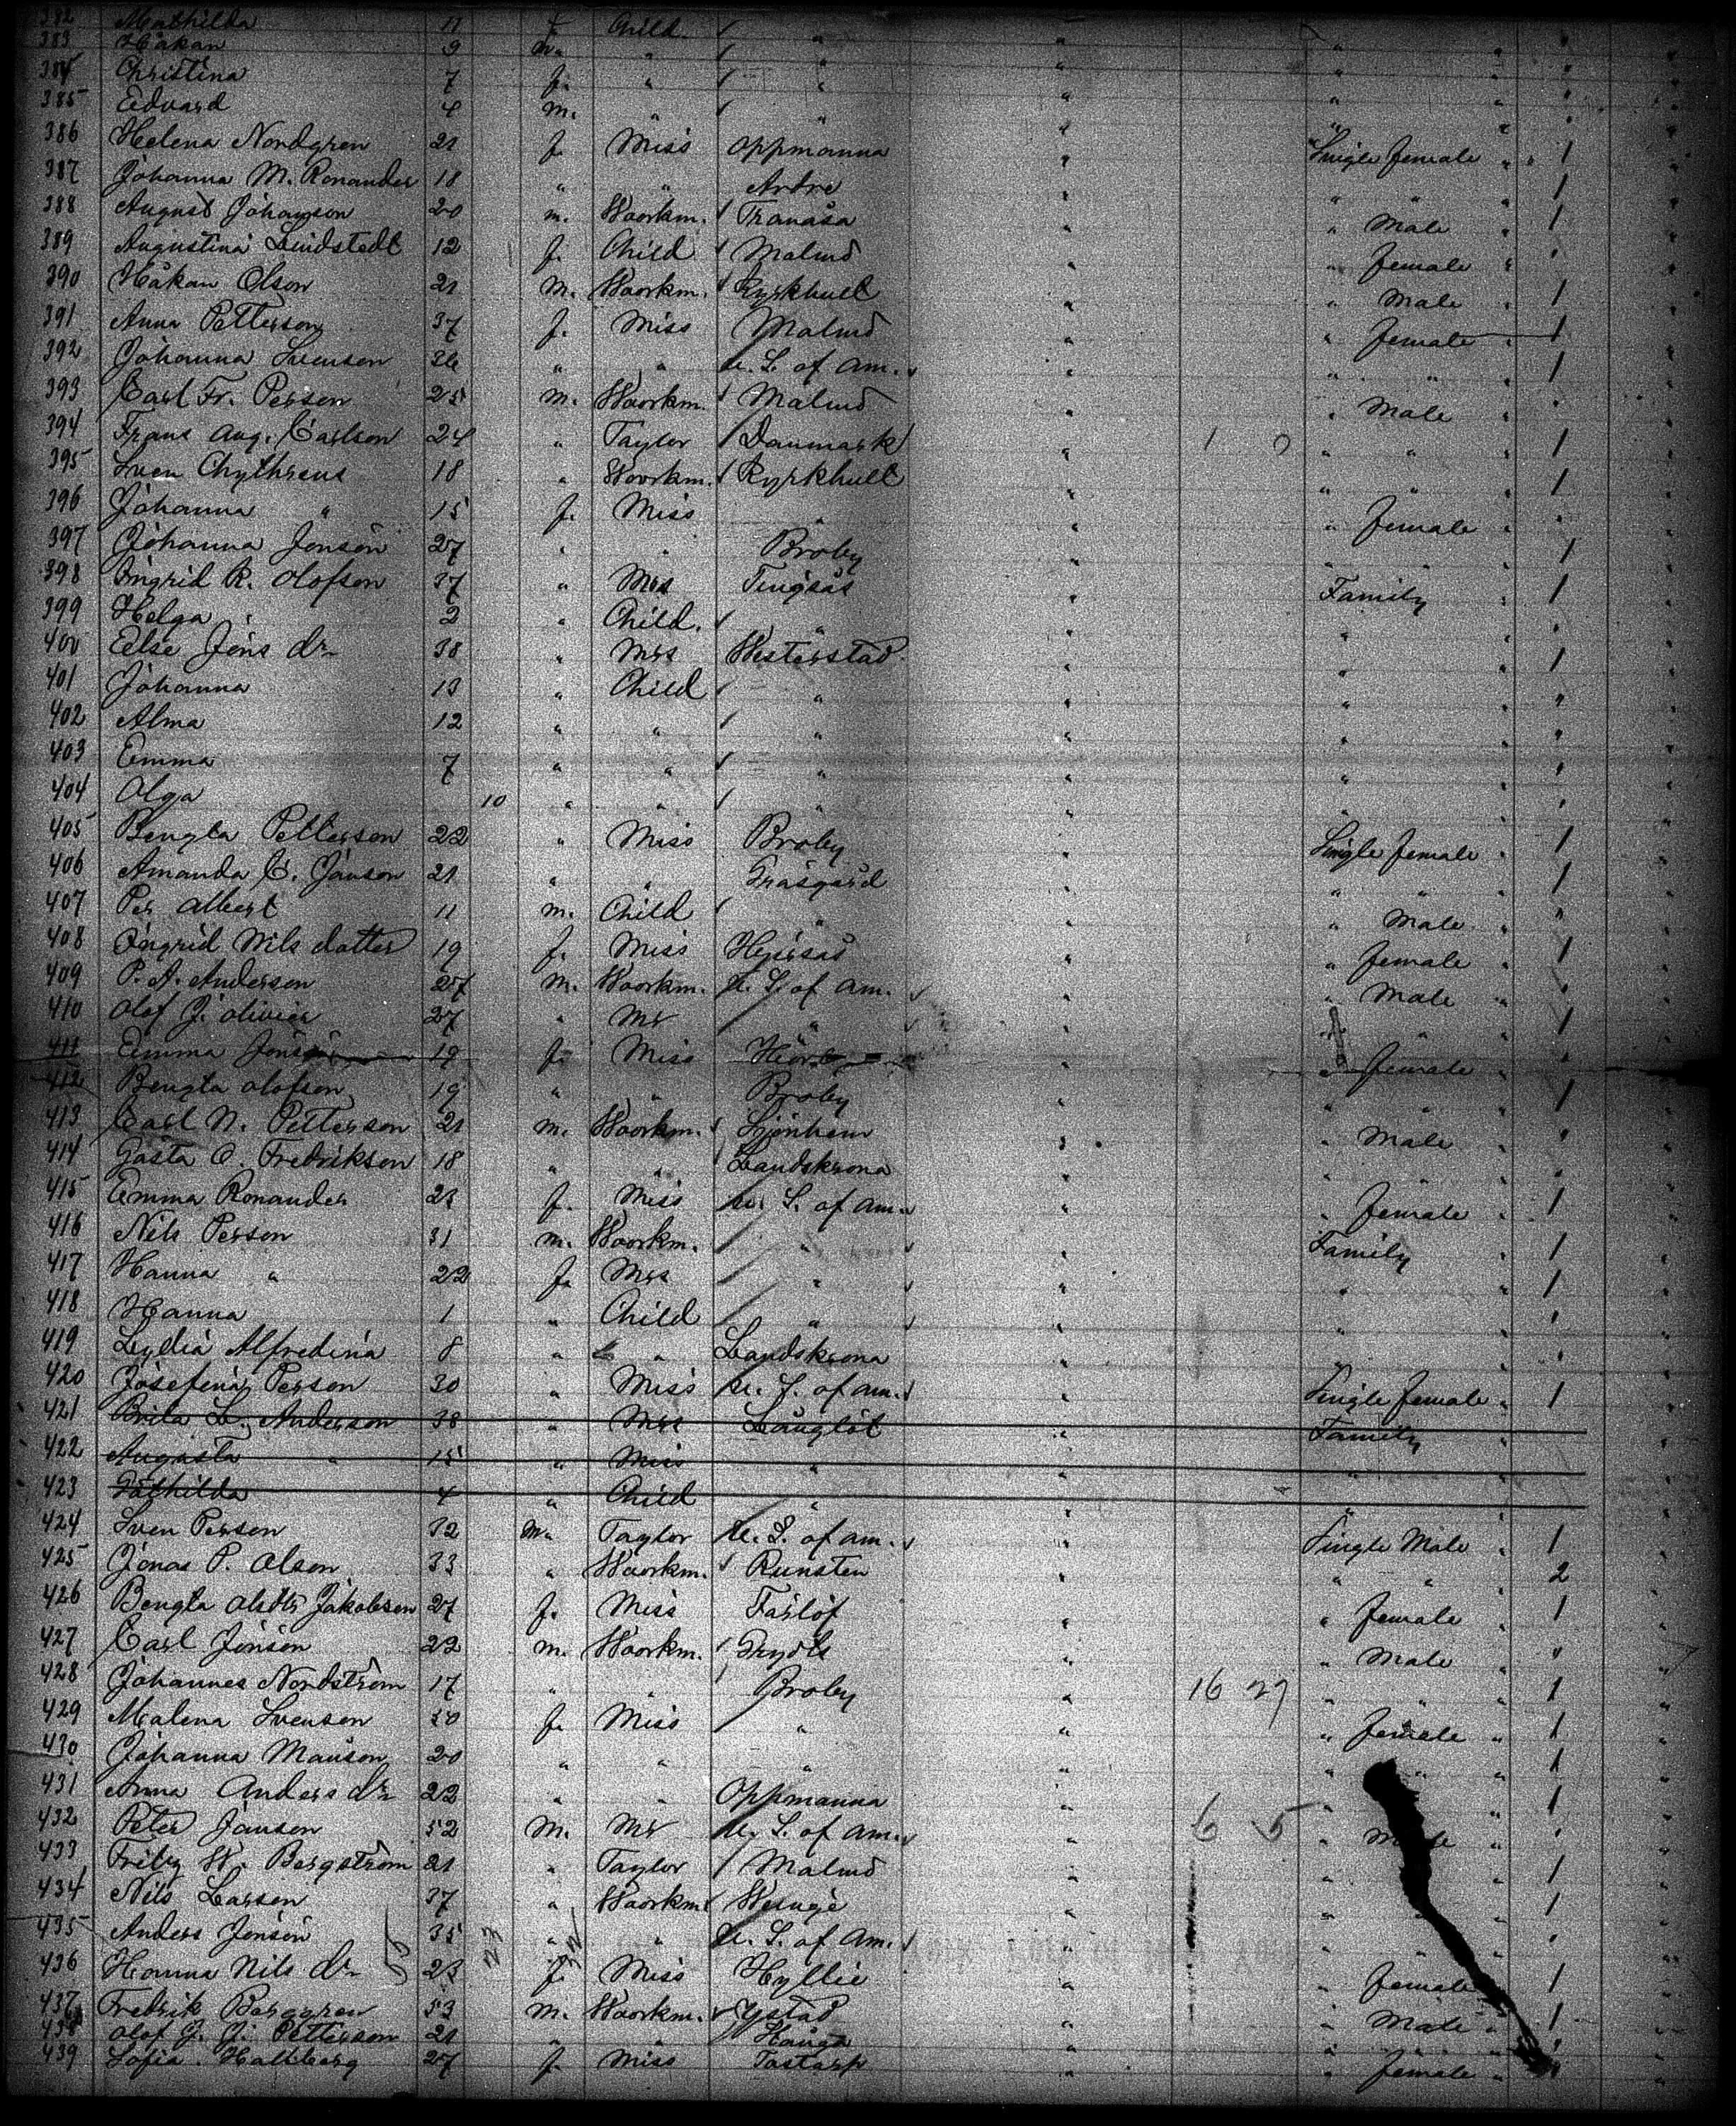 382 Mathilda 11 f. Child " " " " "
383 Håkan 9 m. " " " " " "
384 Christina 7 f. " " " " " "
385 Edvard 4 m. " " " " " "
386 Helena Nordgren 21 f. Miss Oppmanna " Single female " 1 "
387 Johanna M. Ronander 18 " " Ardre " " " " 1 "
388 August Johanson 20 m. Woorkm. Tranåsa " " Male " 1 "
389 Augustina Lindstedt 12 f. Child Malmö " " female " " "
390 Håkan Olson 21 m. Woorkm. Kyrkhult " " Male " 1 "
391 Anna Petterson 37 f. Miss Malmö " " female " 1 "
392 Johanna Svenson 36 " " U. S. of Am. " " " " 1 "
393 Carl Fr. Person 25 m. Woorkm. Malmö " " Male " " "
394 Frans Aug. Carlson 24 " Taylor Danmark " 1 0 " " " 1 "
395 Sven Chythreus 18 " Woorkm. Kyrkhult " " " " 1 "
396 Johanna " 15 f. Miss " " " female " " "
397 Johanna Jonson 27 " " Broby " " " " 1 "
398 Ingrid K. Olofson 37 " Mrs Tingsås " Family " 1 "
399 Helga 2 " Child. " " " " " "
400 Else Jöns dr 38 " Mrs Westerstad " " " 1 "
401 Johanna 13 " Child " " " " " "
402 Alma 12 " " " " " " " "
403 Emma 7 " " " " " " " "
404 Olga 10 " " " " " " " "
405 Bengta Petterson 22 " Miss Broby " Single female " 1 "
406 Amanda C. Janson 21 " " Gräsgård " " " " 1 "
407 Per Albert 11 m. Child " " " Male " " "
408 Ingrid Nils dotter 19 f. Miss Hjersås " " female " 1 "
409 P. A. Anderson 27 m. Woorkm. U. S. of Am. " " Male " " "
410 Olof J. Olivier 27 " Mr " " " 1 "
411 Emma Jönson 19 f. Miss Hörb " " female " " "
412 Bengta Olofson 19 " " Broby " " " " 1 "
413 Carl N. Petterson 21 m. Woorkm. Sjonhem " " Male " " "
414 Gösta O. Fredrikson 18 " " Landskrona " " " " " "
415 Emma Ronander 21 f. Miss U. S. of Am. " " female " 1 "
416 Nils Person 31 m. Woorkm. " " Family " 1 "
417 Hanna " 22 f. Mrs " " " " 1 "
418 Hanna 1 " Child " " " " " "
419 Lydia Alfredina 8 " " Landskrona " " " " "
420 Josefina Person 30 " Miss U. S. of Am. " Single female " 1 "
421 Brita L. Anderson 38 " Mrs Långlöt " Family "
422 Augusta " 15 " Miss " " " "
423 4 " Child " " "
424 Sven Person 32 m. Taylor U. S. of Am. " Single Male " 1 "
425 Jonas P. Olson 33 " Woorkm. Runsten " " " " 2 "
426 Bengta Jakobson 27 f. Miss Färlöf " " female " 1 "
427 Carl Jönson 22 m. Woorkm. " " Male " " "
428 Johannes Nordström 17 " " Broby " 16 27 " " " 1 "
429 Malena Svenson 20 f. Miss " " " female " 1 "
430 Johanna Månson 20 " " " " " " " 1 "
431 Anna Anders dr 22 " " Oppmanna " " " " 1 "
432 Peter Janson 52 m. Mr U. S. of Am. " 6 5 " Male " " "
433 Bergström 21 " Taylor Malmö " " " 1 "
434 Nils Larson 37 " Woorkm. " " " 1 "
435 Anders Jönson 35 " " U. S. of Am. " " " " "
436 Hanna Nils dr 23 f. Miss Hyllie " " female 1 "
437 Fredrik Berggren 53 m. Woorkm. Ystad " " Male " 1 "
438 Olof J. J. Petterson 21 " " " " " " "
439 Sofia Hallberg 27 f. Miss Tåstarp " " female " "